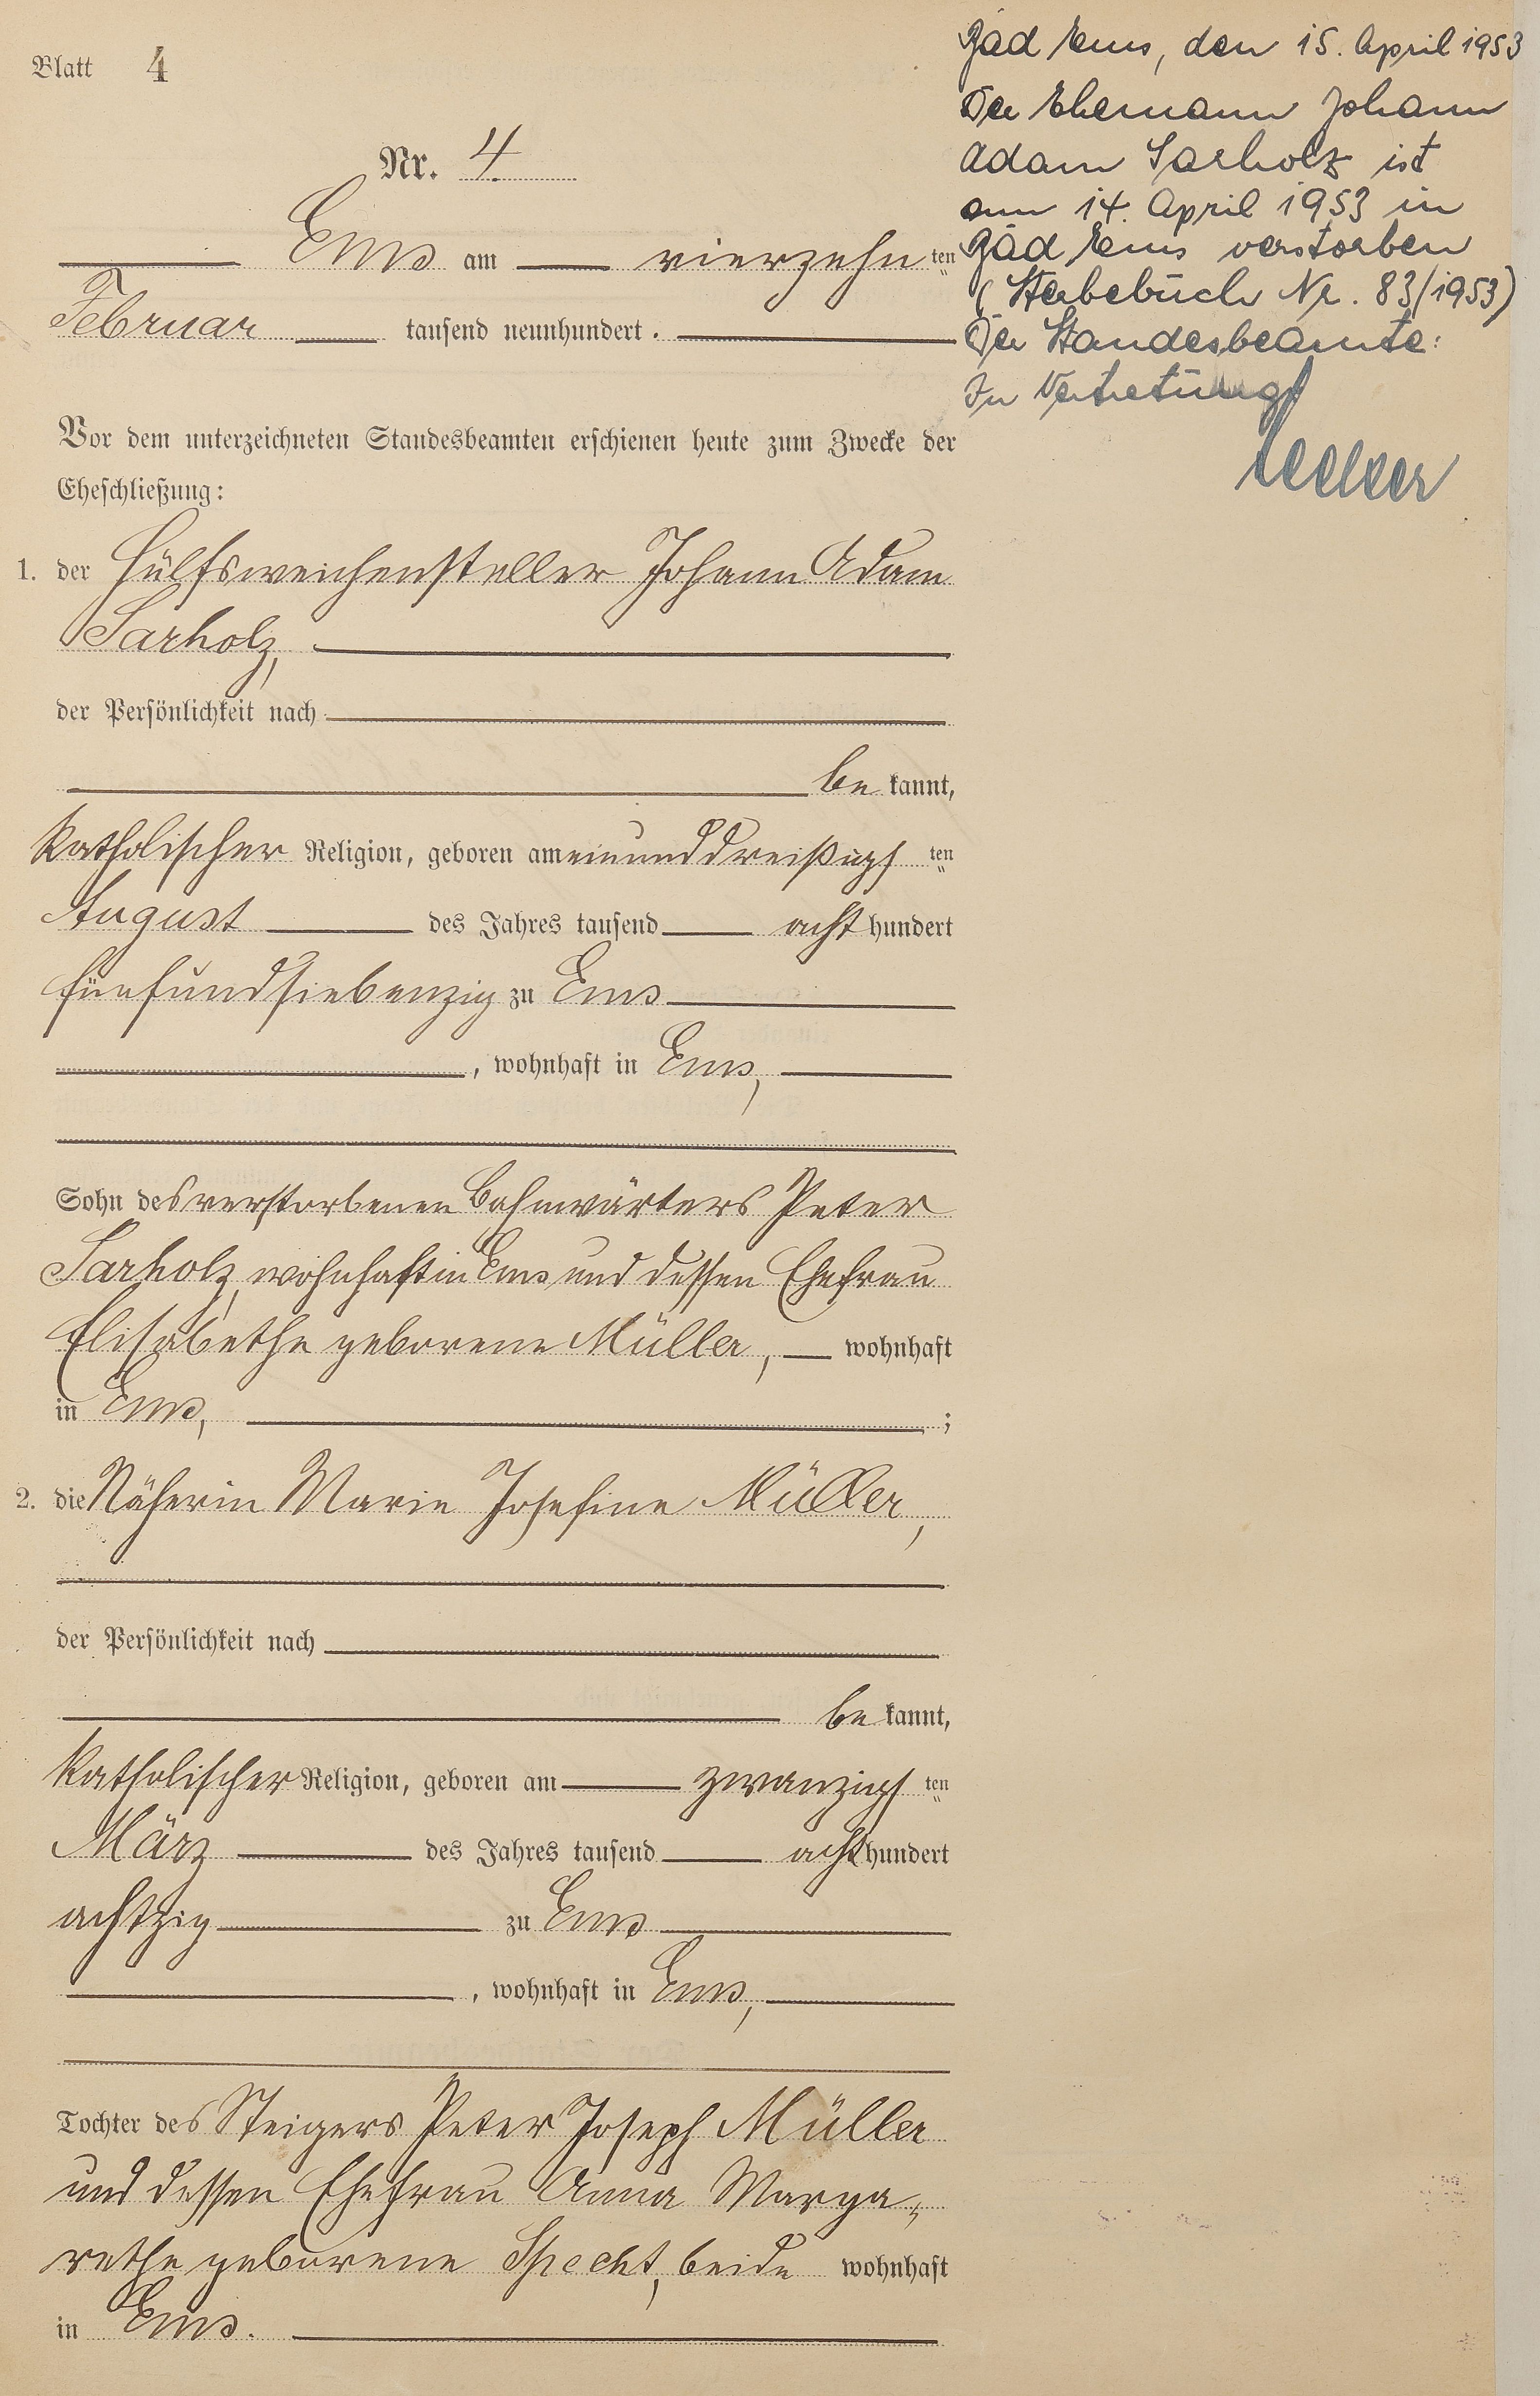 Blatt 4
Nr. 4
Ems am vierzehnten
Februar tausend neunhundert.
Vor dem unterzeichneten Standesbeamten erschienen heute zum Zwecke der
Eheschließung:
1. der Hülfsweichensteller Johann Adam
Sarholz,
der Persönlichkeit nach
bekannt,
katholischer Religion, geboren am einunddreißigsten
August des Jahres tausend achthundert
fünfundsiebenzig zu Ems
, wohnhaft in Ems,
Sohn des verstorbenen Bahnwärters Peter
Sarholz, wohnhaft in Ems und dessen Ehefrau
Elisabethe geborene Müller, wohnhaft
in Ems, ;
2. die Näherin Marie Josefine Müller,
der Persönlichkeit nach
bekannt,
katholischer Religion, geboren am zwanzigsten
März des Jahres tausend achthundert
achtzig zu Ems
, wohnhaft in Ems,
Tochter des Steigers Peter Joseph Müller
und dessen Ehefrau Anna Marga-
rethe geborene Specht, beide wohnhaft
in Ems.
Bad Ems, den 15. April 1953
Der Ehemann Johann
Adam Sarholz ist
am 14. April 1953 in
Bad Ems verstorben
(Sterbebuch Nr. 83/1953)
Der Standesbeamte:
In Vertretung